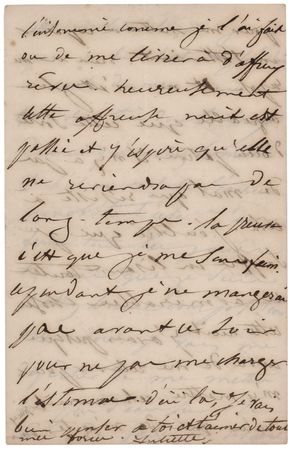 comme je l'ai fait
ou de me livrer à d'affreux
rêves. heureusement
cette affreuse nuit est
passée et j'espère qu'elle
ne reviendra pas de
long-temps. la preuve
c'est que je me sens faim,
cependant je ne mangerai
pas avant ce soir
pour ne pas me charger
l'estomac. d'ici là, je vais
bien penser à toi et t'aimer de toutes
mes forces. Juliette